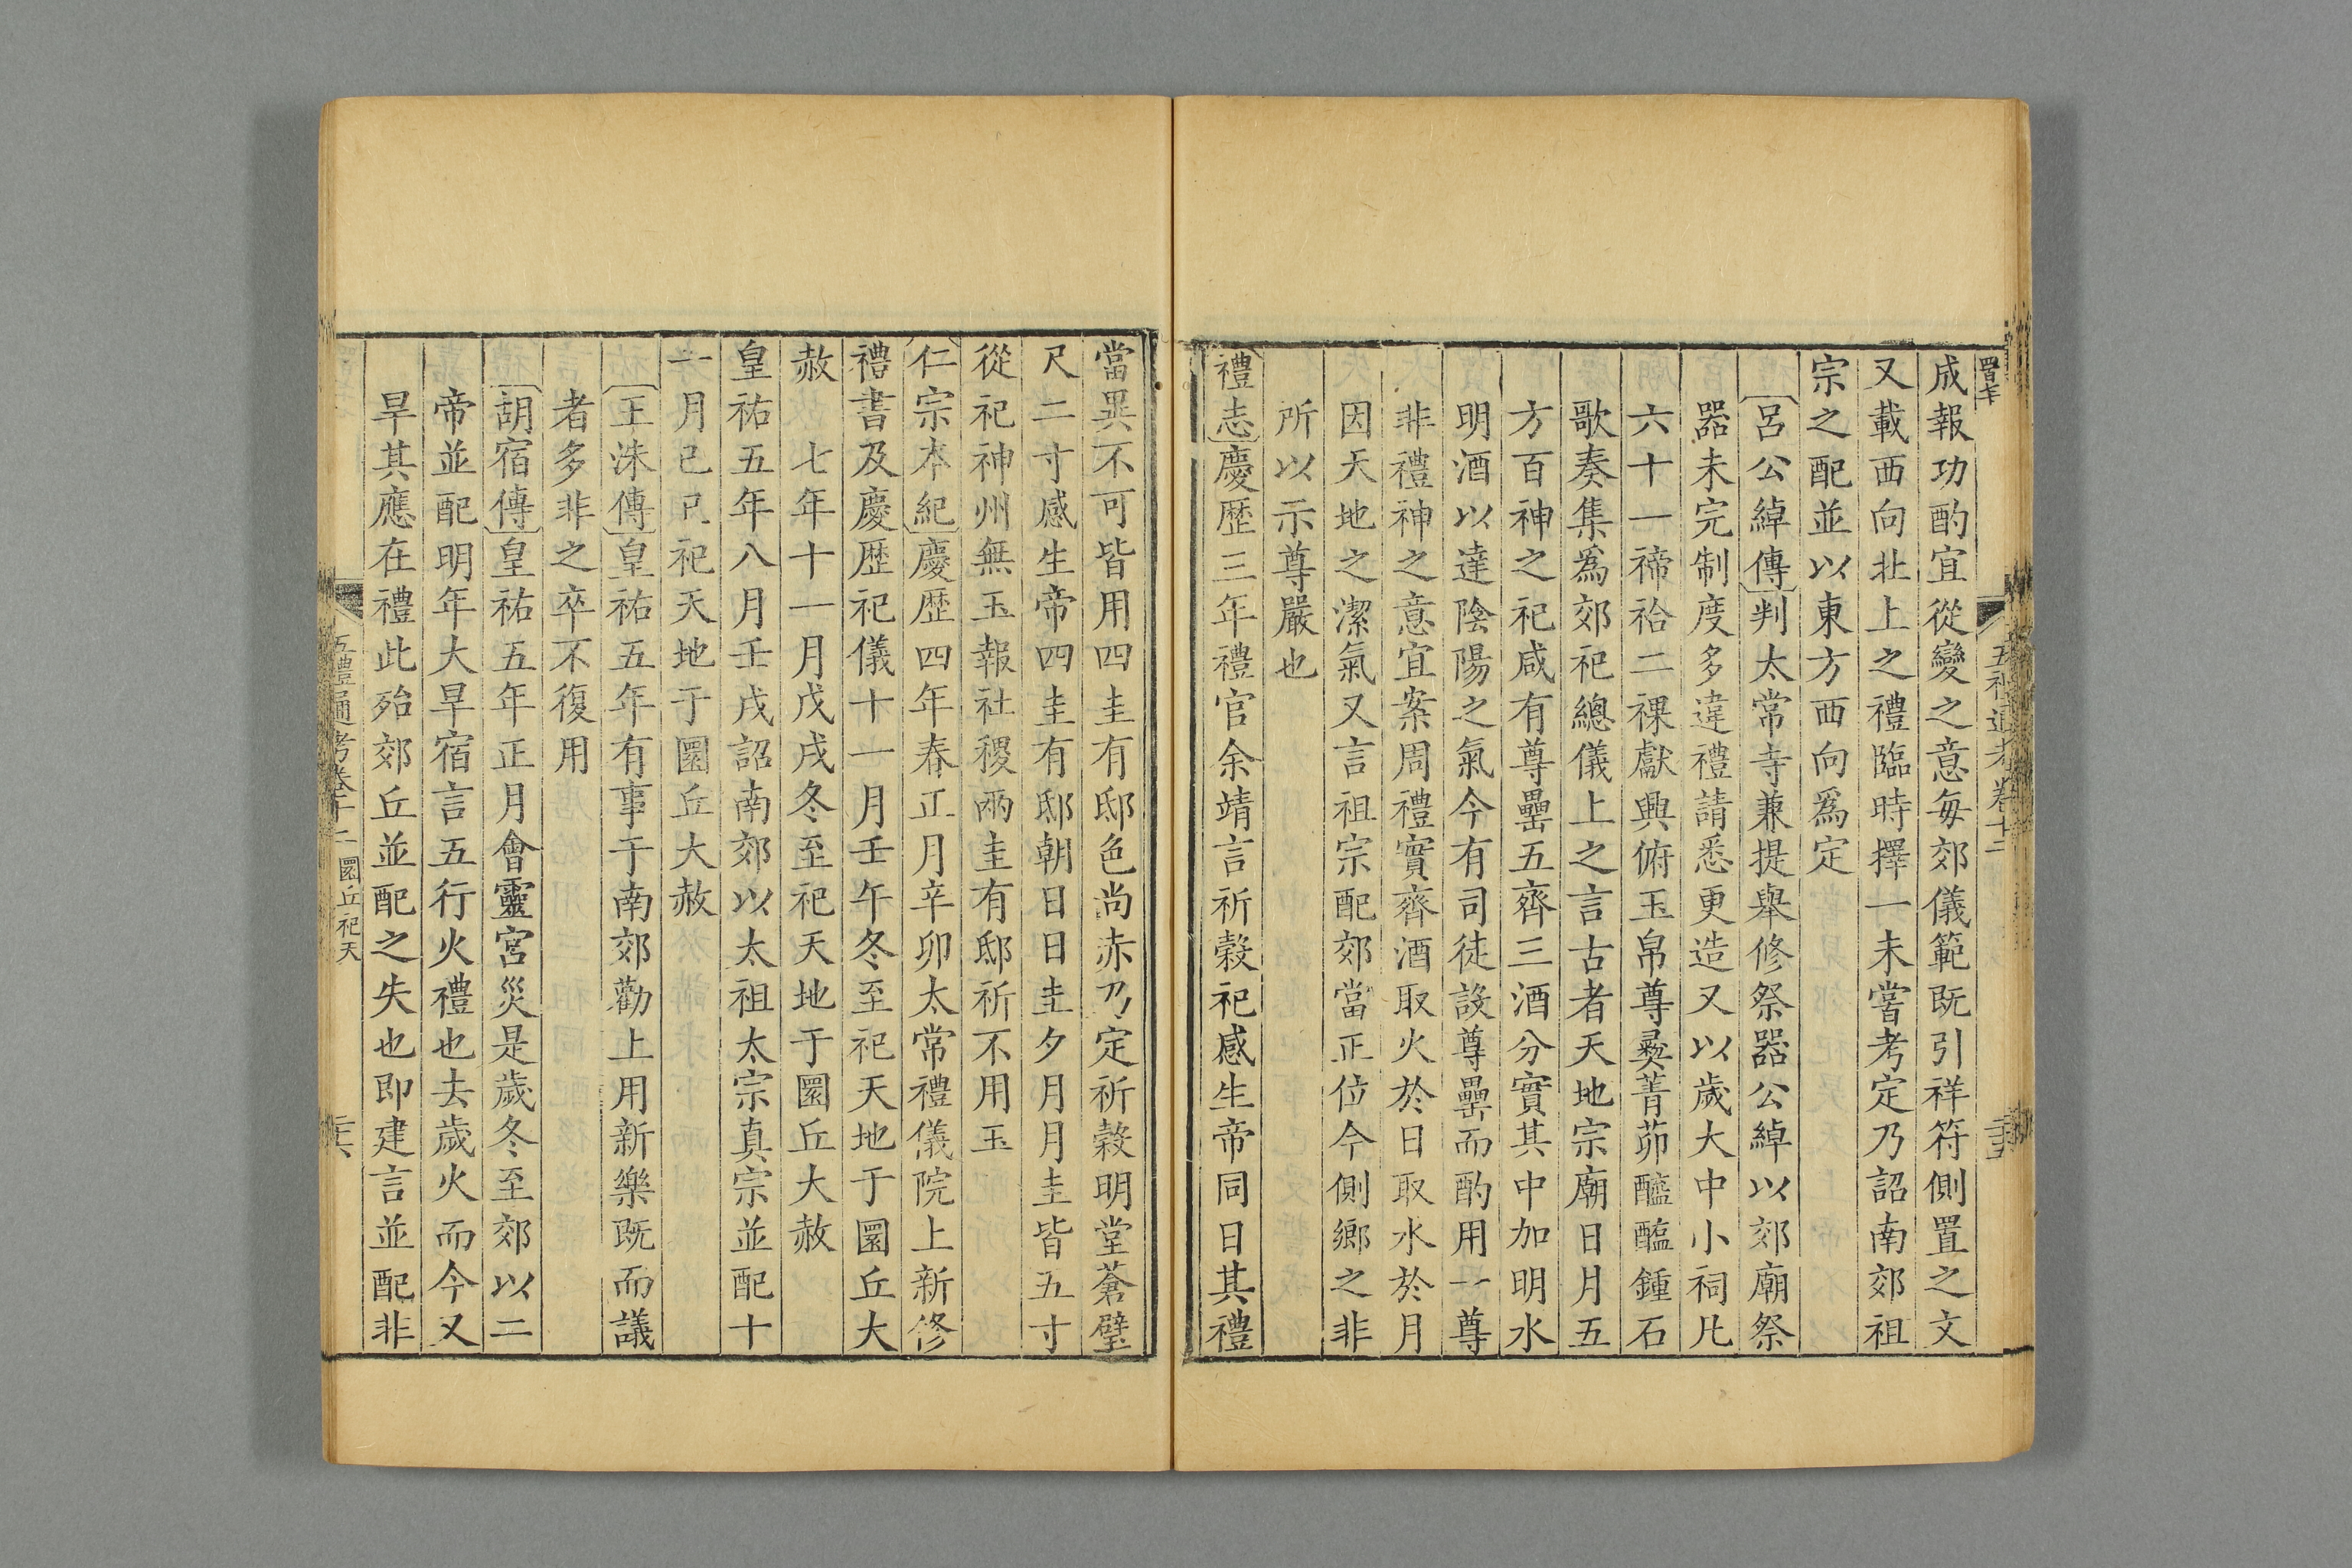 成報功酌宜從變之意每郊儀範既引祥符側置之文
又載西向北上之禮臨時擇一未嘗考定乃詔南郊祖
宗之配並以東方西向爲定
呂公綽傳判太常寺兼提舉修祭器公綽以郊廟祭
器未完制度多違禮請悉更造又以歲大中小祠凡
六十一禘祫二祼獻興俯玉帛尊彝菁茆醯醢鍾石
歌奏集爲郊祀總儀上之言古者天地宗廟日月五
方百神之祀咸有尊罍五齊三酒分實其中加明水
明酒以達陰陽之氣今有司徒設尊罍而酌用一尊
非禮神之意宜案周禮實齊酒取火於日取水於月
因天地之潔氣又言祖宗配郊當正位今側鄉之非
所以示尊嚴也
禮志慶歷三年禮官余靖言祈穀祀感生帝同日其禮
當異不可皆用四圭有邸色尚赤乃定祈穀明堂蒼璧
尺二寸感生帝四圭有邸朝日日圭夕月月圭皆五寸
從祀神州無玉報社稷兩圭有邸祈不用玉
仁宗本紀慶歷四年春正月辛卯太常禮儀院上新修
禮書及慶歷祀儀十一月壬午冬至祀天地于圜丘大
赦　七年十一月戊戌冬至祀天地于圜丘大赦
皇祐五年八月壬戌詔南郊以太祖太宗真宗並配十
一月己巳祀天地于圜丘大赦
王洙傳皇祐五年有事于南郊勸上用新樂既而議
者多非之卒不復用
胡宿傳皇祐五年正月會靈宮災是歲冬至郊以二
帝並配明年大旱宿言五行火禮也去歲火而今又
旱其應在禮此殆郊丘並配之失也即建言並配非
五禮通考卷十二　圜丘祀天